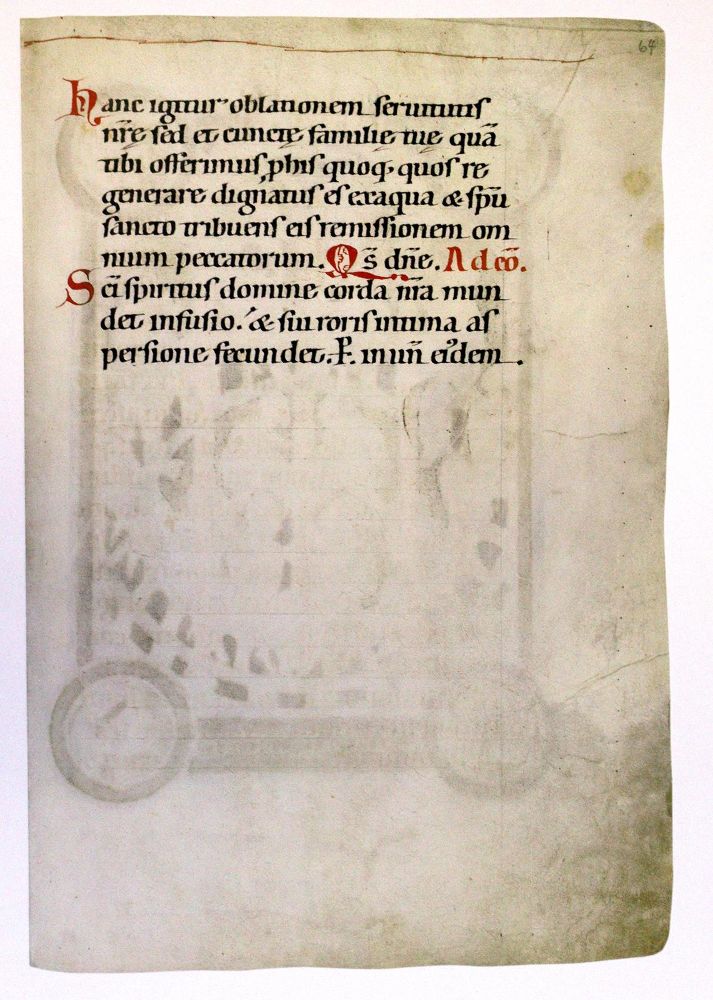 64
hanc igitur oblationem seruitutis
nr̄ę sed et cunctę familię tuę quā
tibi offerimus, p his quoq; quos re
generare dignatus es exaqua & sp̄u
sancto tribuens eis remissionem om
nium peccatorum. Q̄s dn̄e. Ad cō.
Sc̄i spiritus domine corda nr̄a mun
det infusio. & sui roris intima as
persione fecundet. P. in un̄ eiꝰdem.